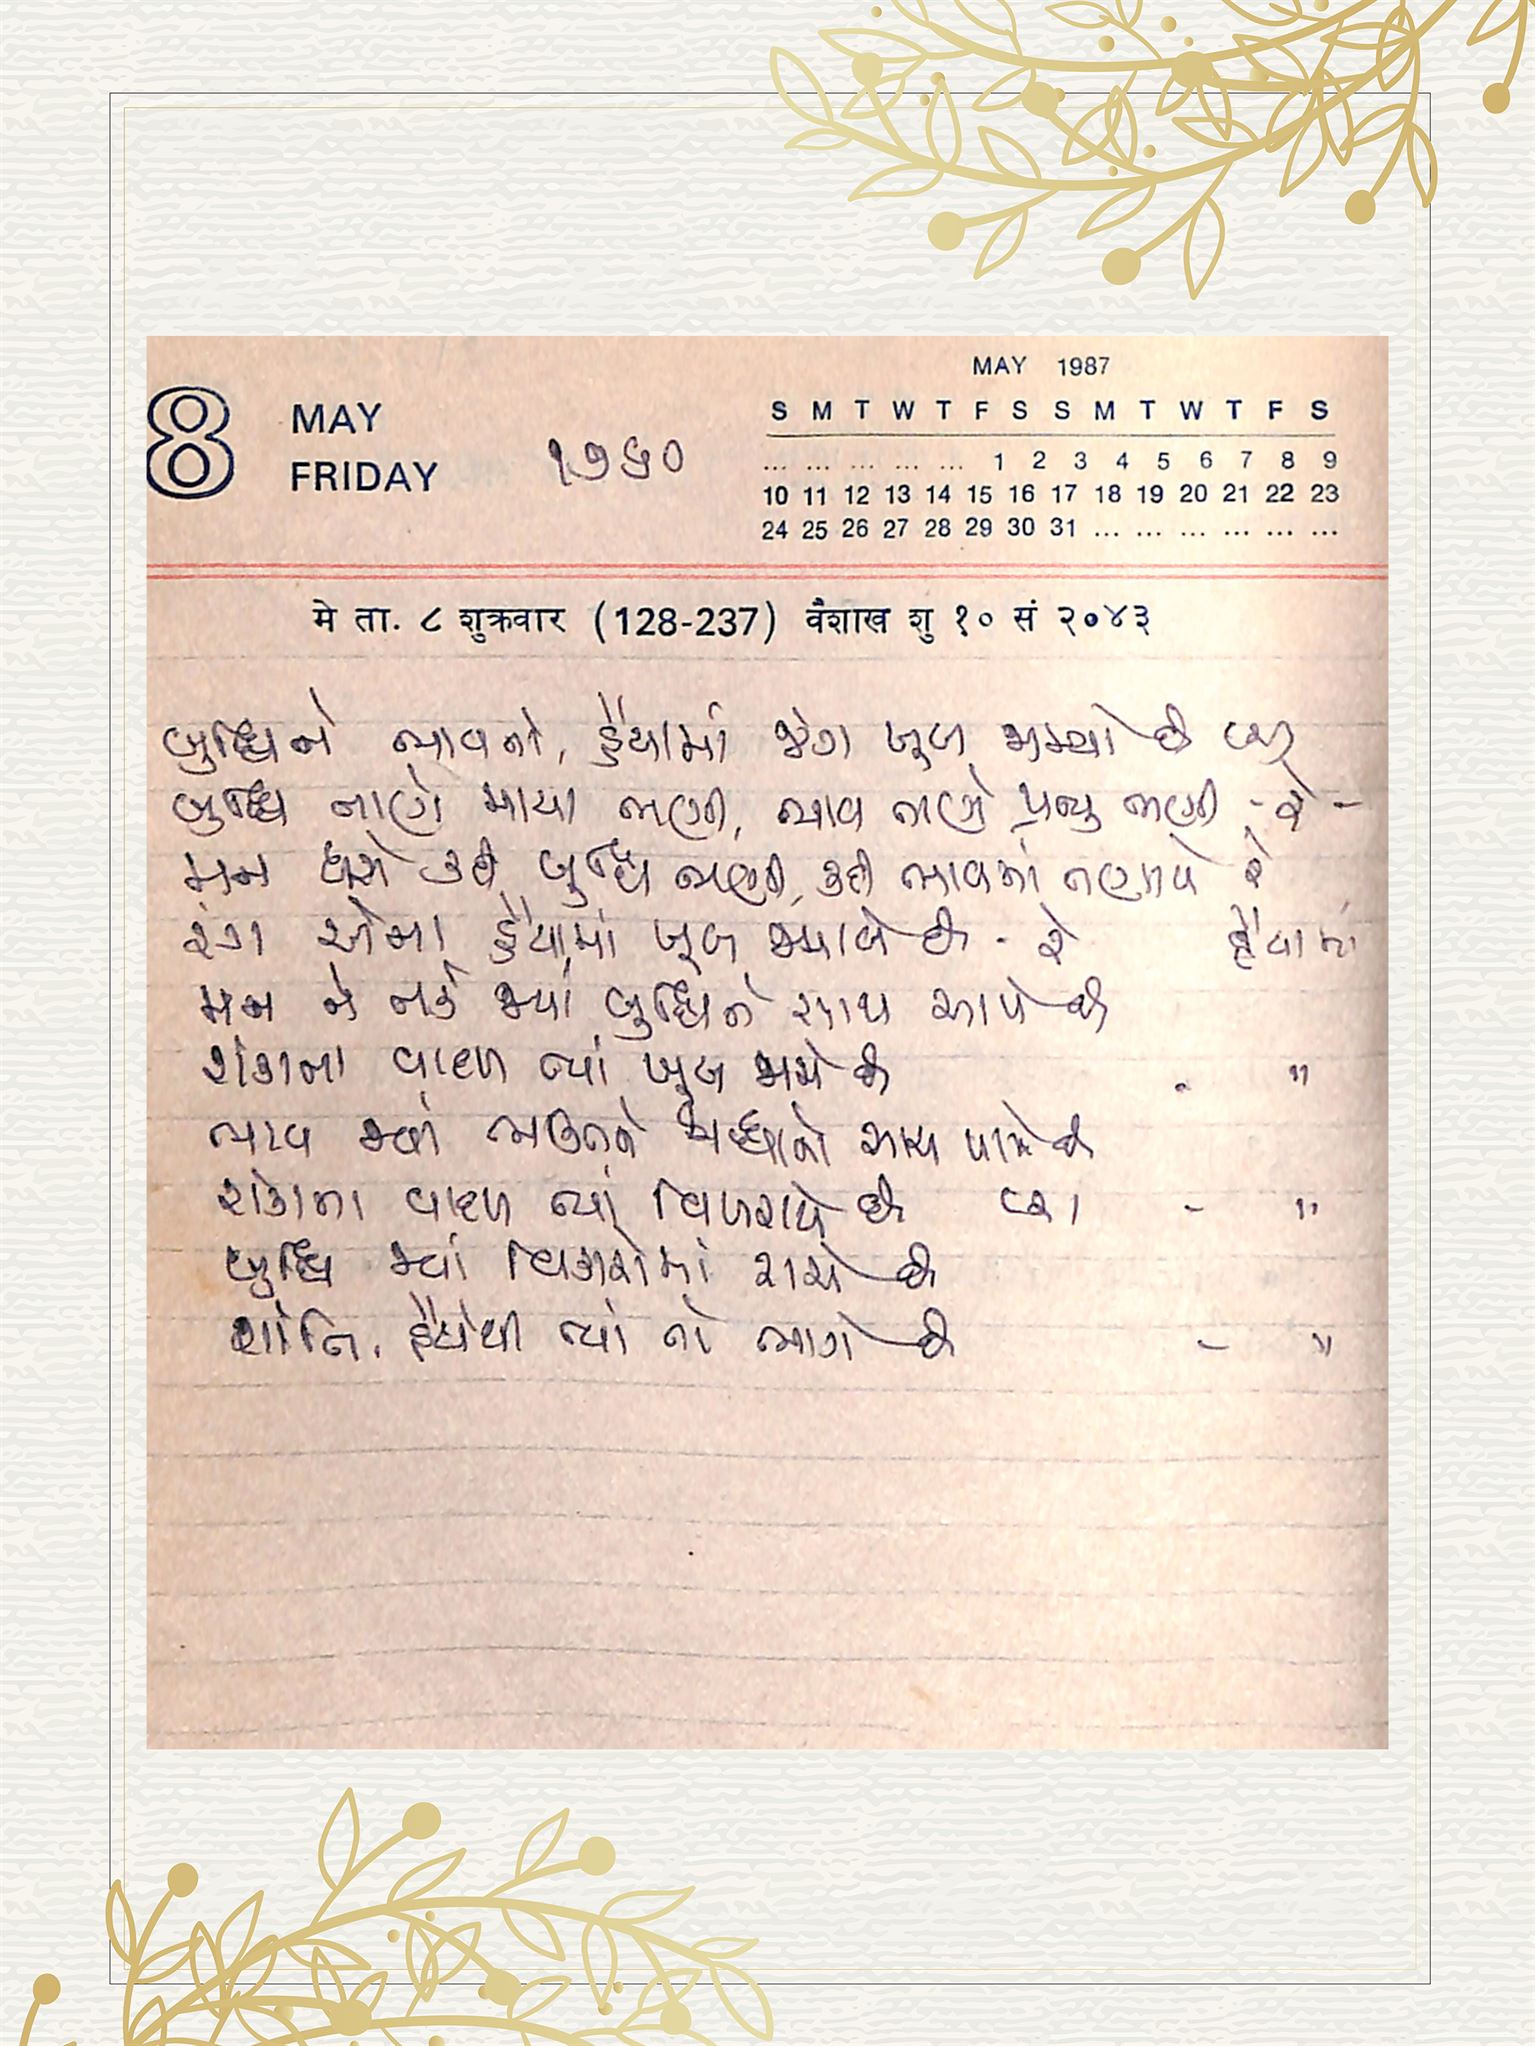 MAY 1987
8 MAY
FRIDAY
૧૭૬૦
S M T W T F S S M T W T F S
... ... ... ... ... 1 2 3 4 5 6 7 8 9
10 11 12 13 14 15 16 17 18 19 20 21 22 23
24 25 26 27 28 29 30 31 ... ... ... ... ... ...
मे ता. ८ शुक्रवार (128-237) वैशाख शु १० सं २०४३
બુદ્ધિને ભાવનો, હૈયામાં જંગ ખૂબ જામ્યો છે
બુદ્ધિ તાણે માયા ભણી, ભાવ તાણે પ્રભુ ભણી - રે -
મન ઘસે કદી બુદ્ધિ ભણી, કદી ભાવમાં તણાયે રે
રંગ એના હૈયામાં ખૂબ જામે છે - રે હૈયામાં
મન ને તર્ક જ્યાં બુદ્ધિને સાથ આપે છે
શંકાના વાદળ ત્યાં ખૂબ જામે છે - "
ભાવ જ્યાં ભક્તિને શ્રદ્ધાનો સાથ પામે છે
શંકાના વાદળ ત્યાં વિખરાયે છે - "
બુદ્ધિ જ્યાં વિકારોમાં રાચે છે
શાંતિ, હૈયેથી ત્યાં તો ભાગે છે - "